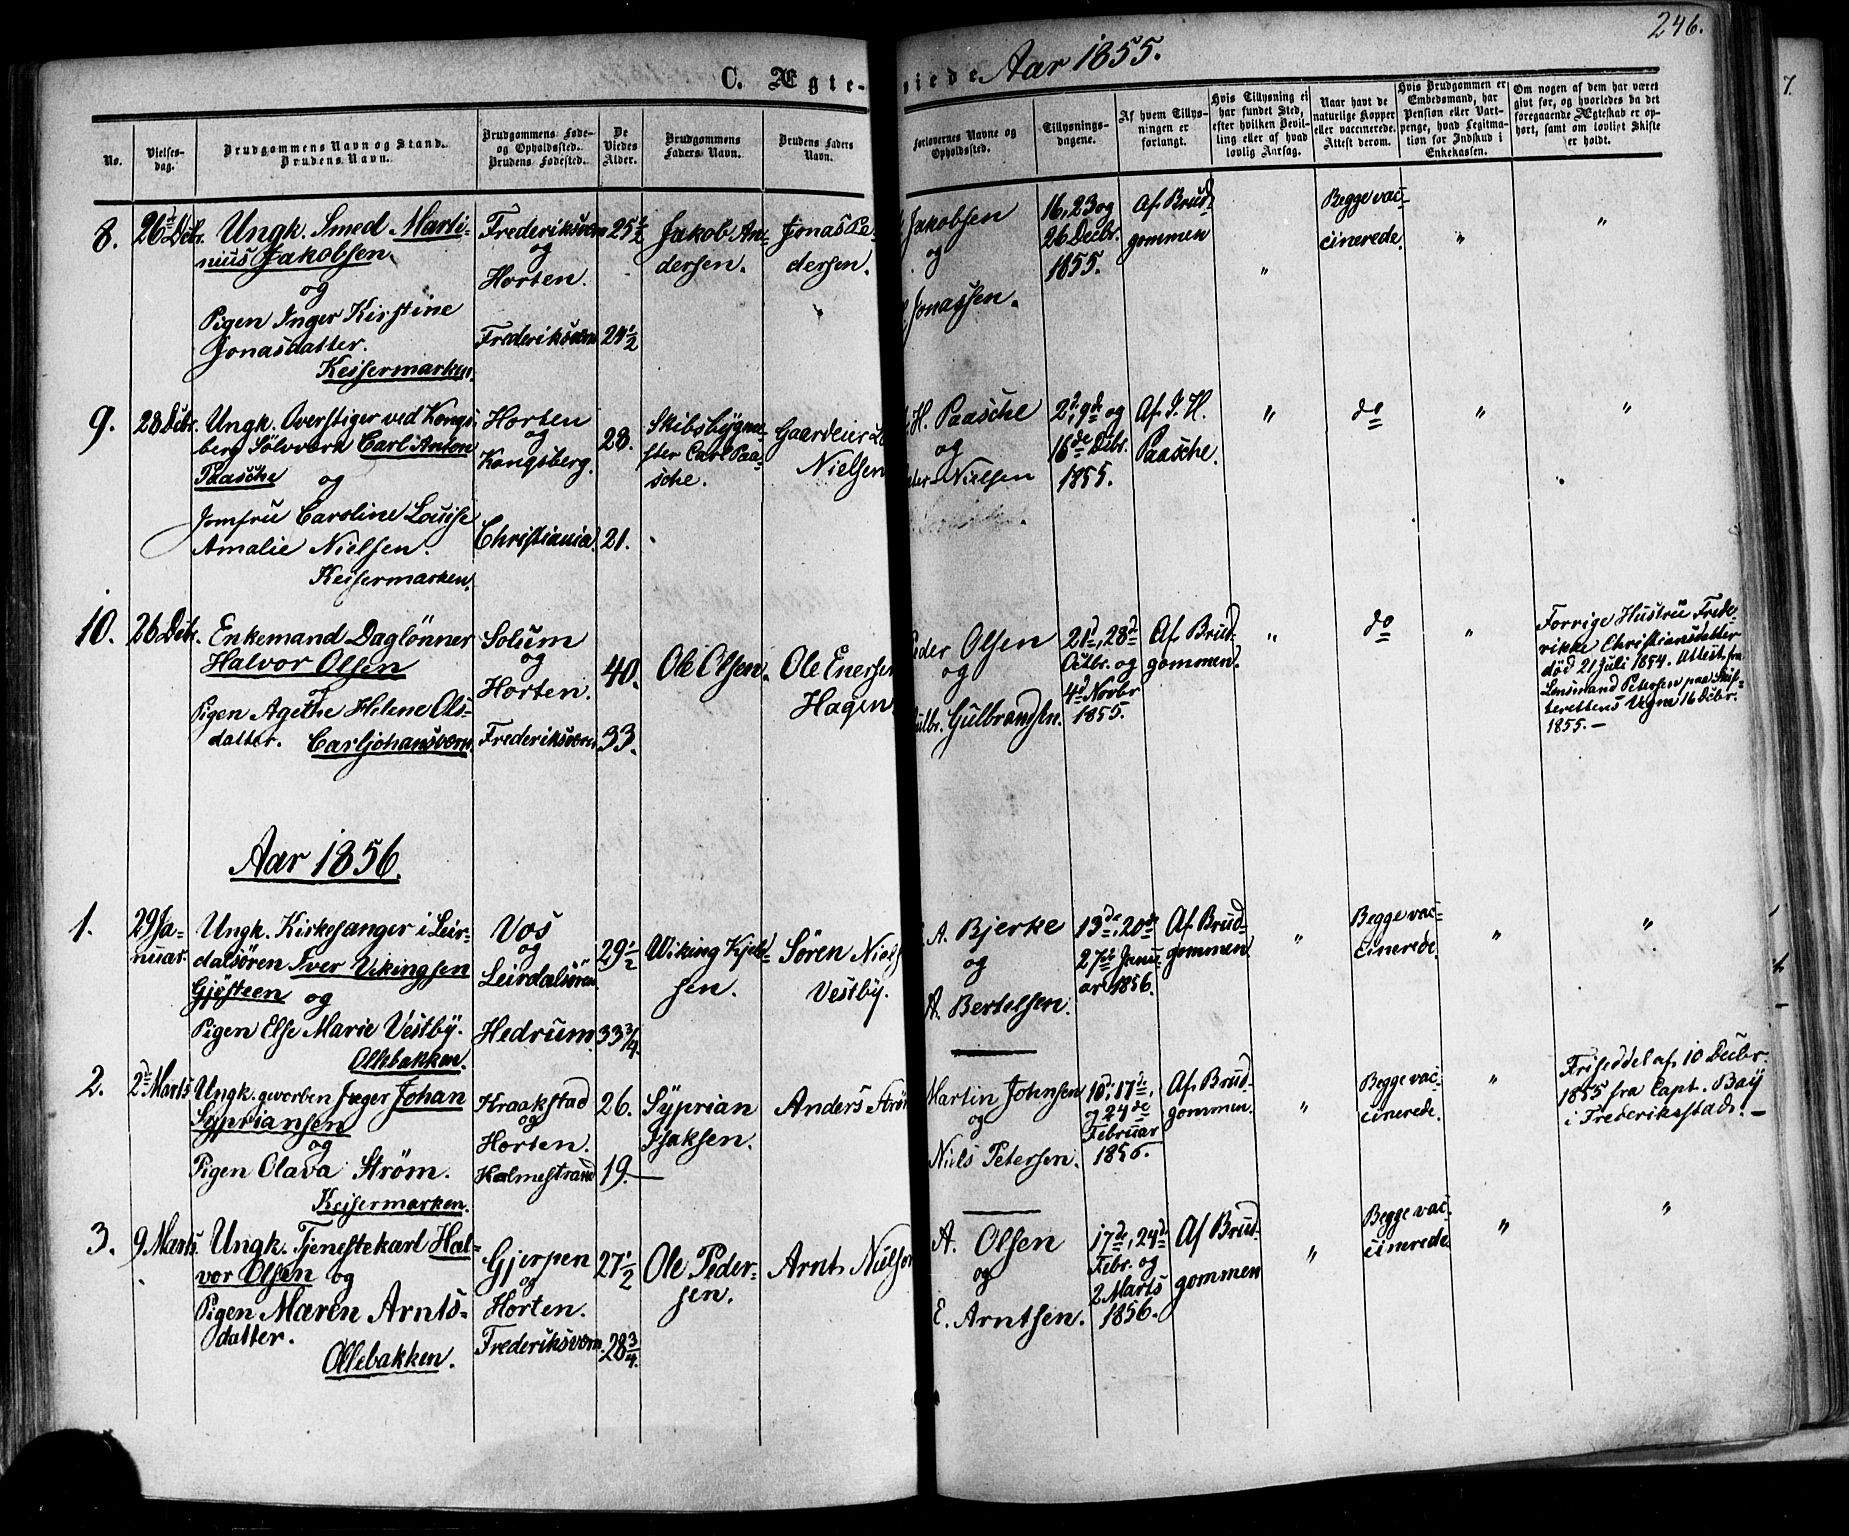 246.
C. Ægte-
viede. Aar 1855.
No.
Vielses-
dag.
Brudgommens Navn og Stand.
Brudens Navn.
Brudgommens Føde-
og Opholdssted.
Brudens Fødested.
De
Viedes
Alder.
Brudgommens
Faders Navn.
Brudens Faders
Navn.
Forlovernes Navne og
Opholdssted.
Tillysnings-
dagene.
Af hvem Tillys-
ningen er
forlangt.
Hvis Tillysning ei
har fundet Sted,
efter hvilken Bevil-
ling eller af hvad
lovlig Aarsag.
Naar havt de
naturlige Kopper
eller vaccinerede.
Attest derom.
Hvis Brudgommen er
Embedsmand, har
Pension eller Vart-
penge, hvad Legitima-
tion for Indskud i
Enkekassen.
Om nogen af dem har været
givt før, og hvorledes da det
foregaaende Ægteskab er op-
hørt, samt om lovligt Skifte
er holdt.
8. 26de Dcbr.
Ungk. Smed Marti-
nius Jakobsen
og
Pigen Inger Kirstine
Jonasdatter.
Keisermarken.
Frederiksværn
og
Horten.
Frederiksværn
25 1/2
24 1/2
Jakob An-
dersen.
Jonas Pe-
dersen.
Jakobsen
og
Jonassen.
16, 23 og
26 Decbr.
1855.
Af Brud-
gommen
"
Begge vac-
cinerede.
"
"
9. 28 Dcbr.
Ungk. Overstiger ved Kongs-
berg Sølvværk Carl Anton
Paasche og
Jomfru Caroline Louise
Amalie Nielsen.
Keisermarken.
Horten
og
Kongsberg.
Christiania.
28.
21.
Skibsbygme-
ster Carl Paa-
sche.
Gaardeier
Nielsen
H. Paasche
og
Nielsen
2d, 9d og
16de Dcbr.
1855.
Af J. H.
Paasche.
"
do
"
"
10. 26 Dcbr.
Enkemand Daglønner
Halvor Olsen
Pigen Agethe Helene Ols-
datter. Carljohansværn.
Solum
og
Horten.
Frederiksværn
40.
33.
Ole Olsen.
Ole Enersen
Hagen
Peder Olsen
og
Gulbr. Gulbrandsen.
21d, 28d
Octbr. og
4d Novbr
1855.
Af Brud-
gommen.
"
do
"
Forrige Hustru Frede-
rikke Christiansdatter
død 21 Juli 1854. Attest fra
Lensmand Petersen paa Skif-
terettens Vegne 16 Dcbr.
1855. —
Aar 1856.
1. 29 Ja-
nuar.
Ungk. Kirkesanger i Leir-
dalsören Iver Vikingsen
Gjesteen og
Pigen Else Marie Vestby.
Ollebakken.
Vos
og
Leirdalsören.
Hedrum.
29 1/2
33 3/4
Wiking Kjels-
sen.
Sören Niels
Vestby.
A. Bjerke
og
A. Bertelsen.
13de, 20de
27de Janu-
ar 1856.
Af Brud-
gommen
"
Begge vac-
cinerede.
"
"
2. 2de Marts
Ungk. gevorben Jæger Johan
Sypriansen
og
Pigen Olava Strøm.
Keisermarken.
Kraakstad
og
Horten.
Holmestrand
26.
19.
Syprian
Isaksen.
Anders Strøm
Martin Johnsen
og
Niels Petersen.
10d, 17de,
24de
Februar
1856.
Af Brud-
gommen.
"
Begge vac-
cinerede.
"
Friseddel af 10 Decbr.
1855 fra Capt. Bay
i Frederiksstad. —
3. 9 Marts.
Ungk. Tjenestekarl Hal-
vor Olsen og
Pigen Maren Arnts-
datter.
Ollebakken.
Gjerpen
og
Horten.
Frederiksværn.
27 1/2
28 3/4
Ole Peder-
sen.
Arnt Nielsen
A. Olsen
og
E. Arntsen.
17de, 24de
Febr. og
2 Marts
1856.
Af Brud-
gommen
"
Begge vac-
cinerede.
"
"